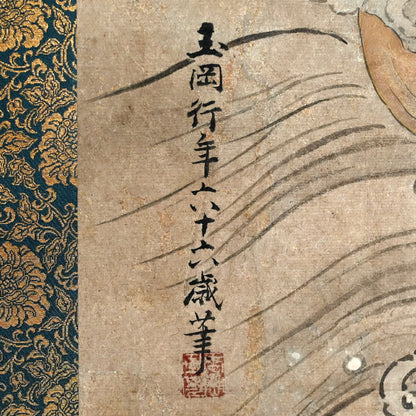 玉岡行年六十六歳筆